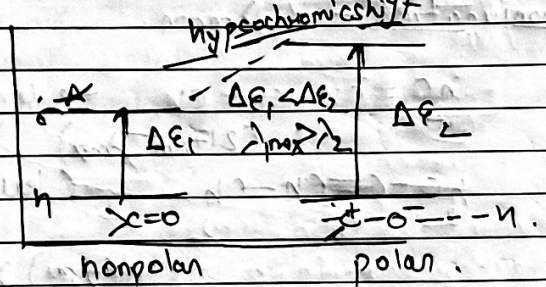 hypsochromic shift
ΔE₁ < ΔE₂
ΔE₁ λmax > λ₂ ΔE₂
n >C=O -C⁺-O⁻----H.
nonpolar polar.